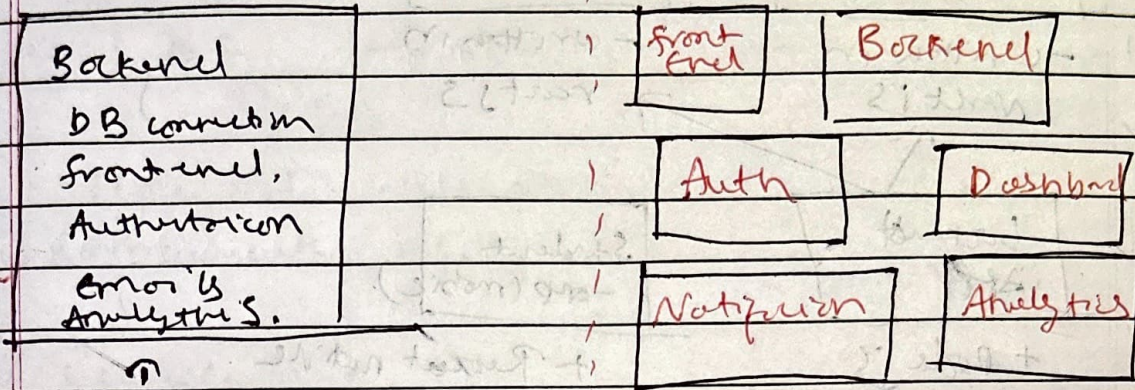 Backend
DB connection
frontend,
Authentication
Emails
Analytics.
front
end
Backend
Auth
Dashboard
Notification
Analytics